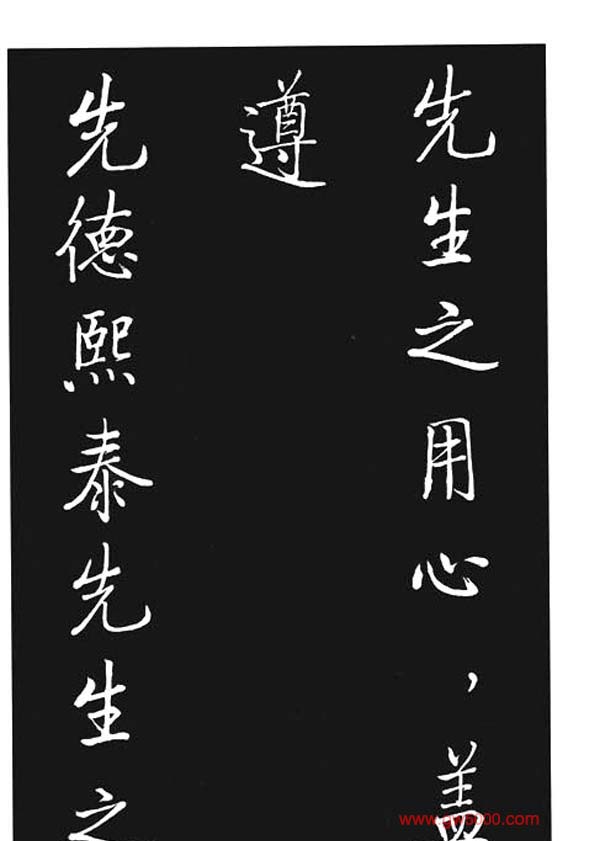 先生之用心，盖
遵
先德熙泰先生之
www.gw5000.com